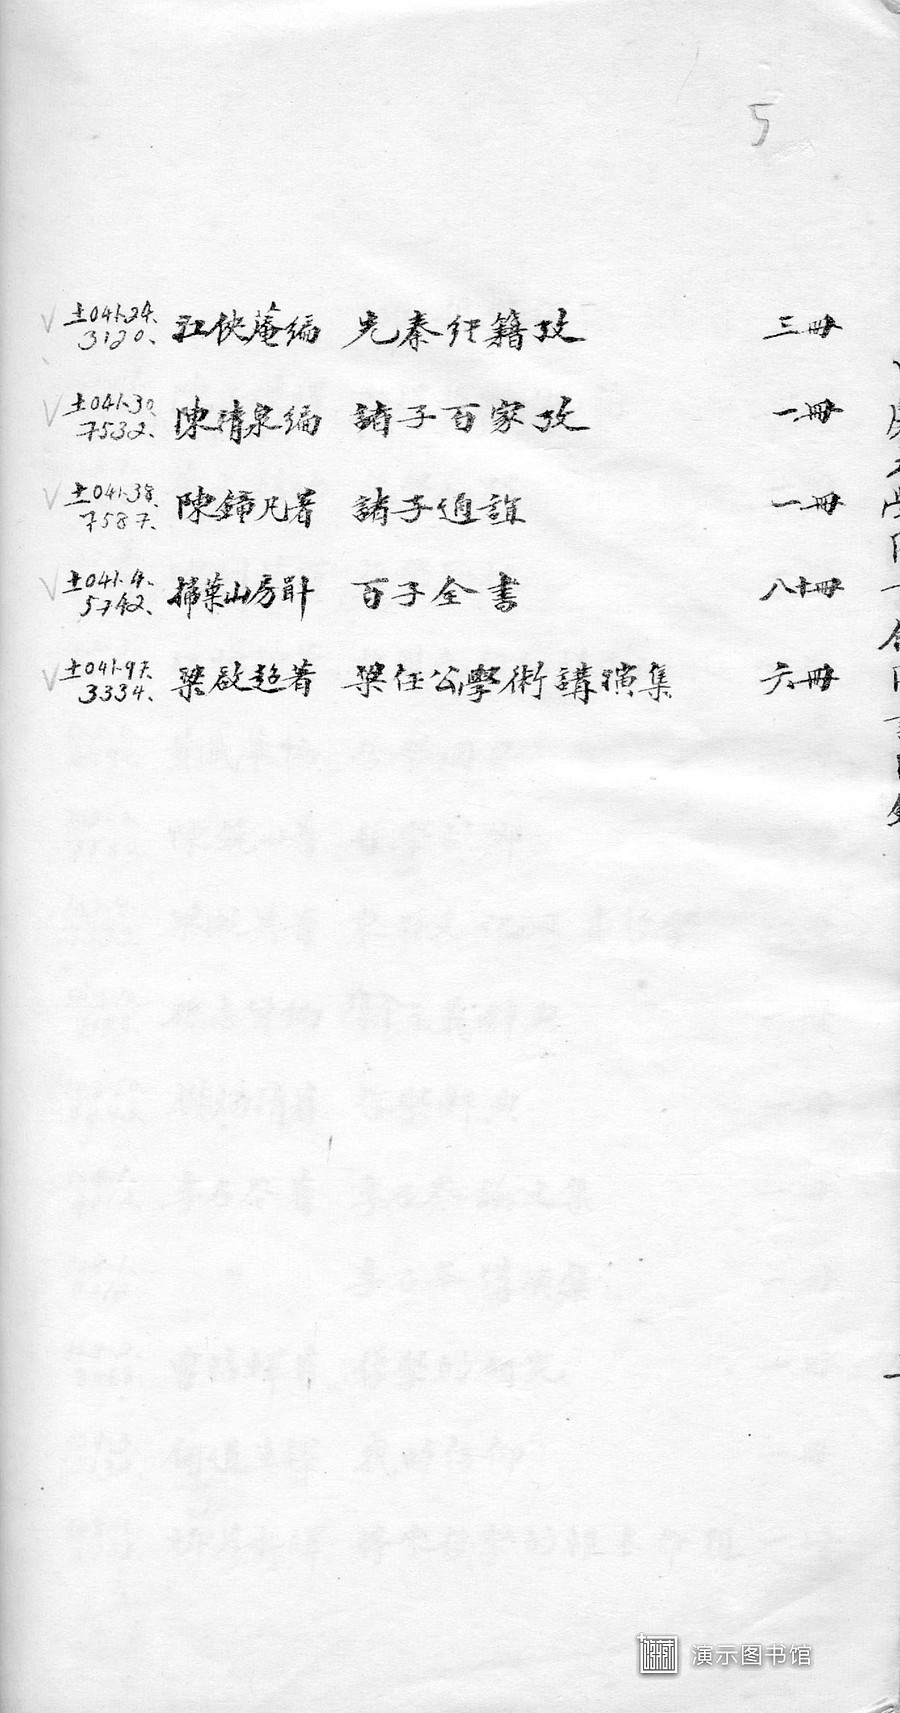 5
±041.24. 3120. 江俠菴編 先秦經籍攷 三冊
±041.30. 7532. 陳清泉編 諸子百家攷 一冊
±041.38. 7587. 陳鐘凡著 諸子通誼 一冊
±041.4. 5742. 掃葉山房 百子全書 八十冊
±041.97. 3334. 梁啟超著 梁任公學術講演集 六冊
演示图书馆